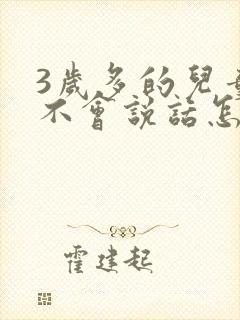 3歲多的兒
不會說話怎
霍建起